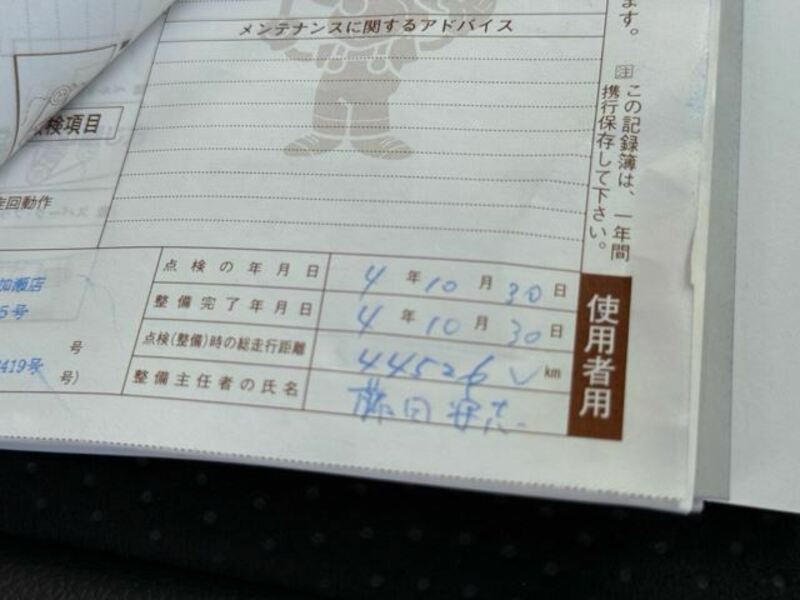 メンテナンスに関するアドバイス
ます。
注 この記録簿は、一年間
携行保存して下さい。
検項目
回動作
加瀬店
5号
号
419号
号)
点検の年月日 4年10月30日
整備完了年月日 4年10月30日
点検(整備)時の総走行距離 44526 km
整備主任者の氏名
使用者用